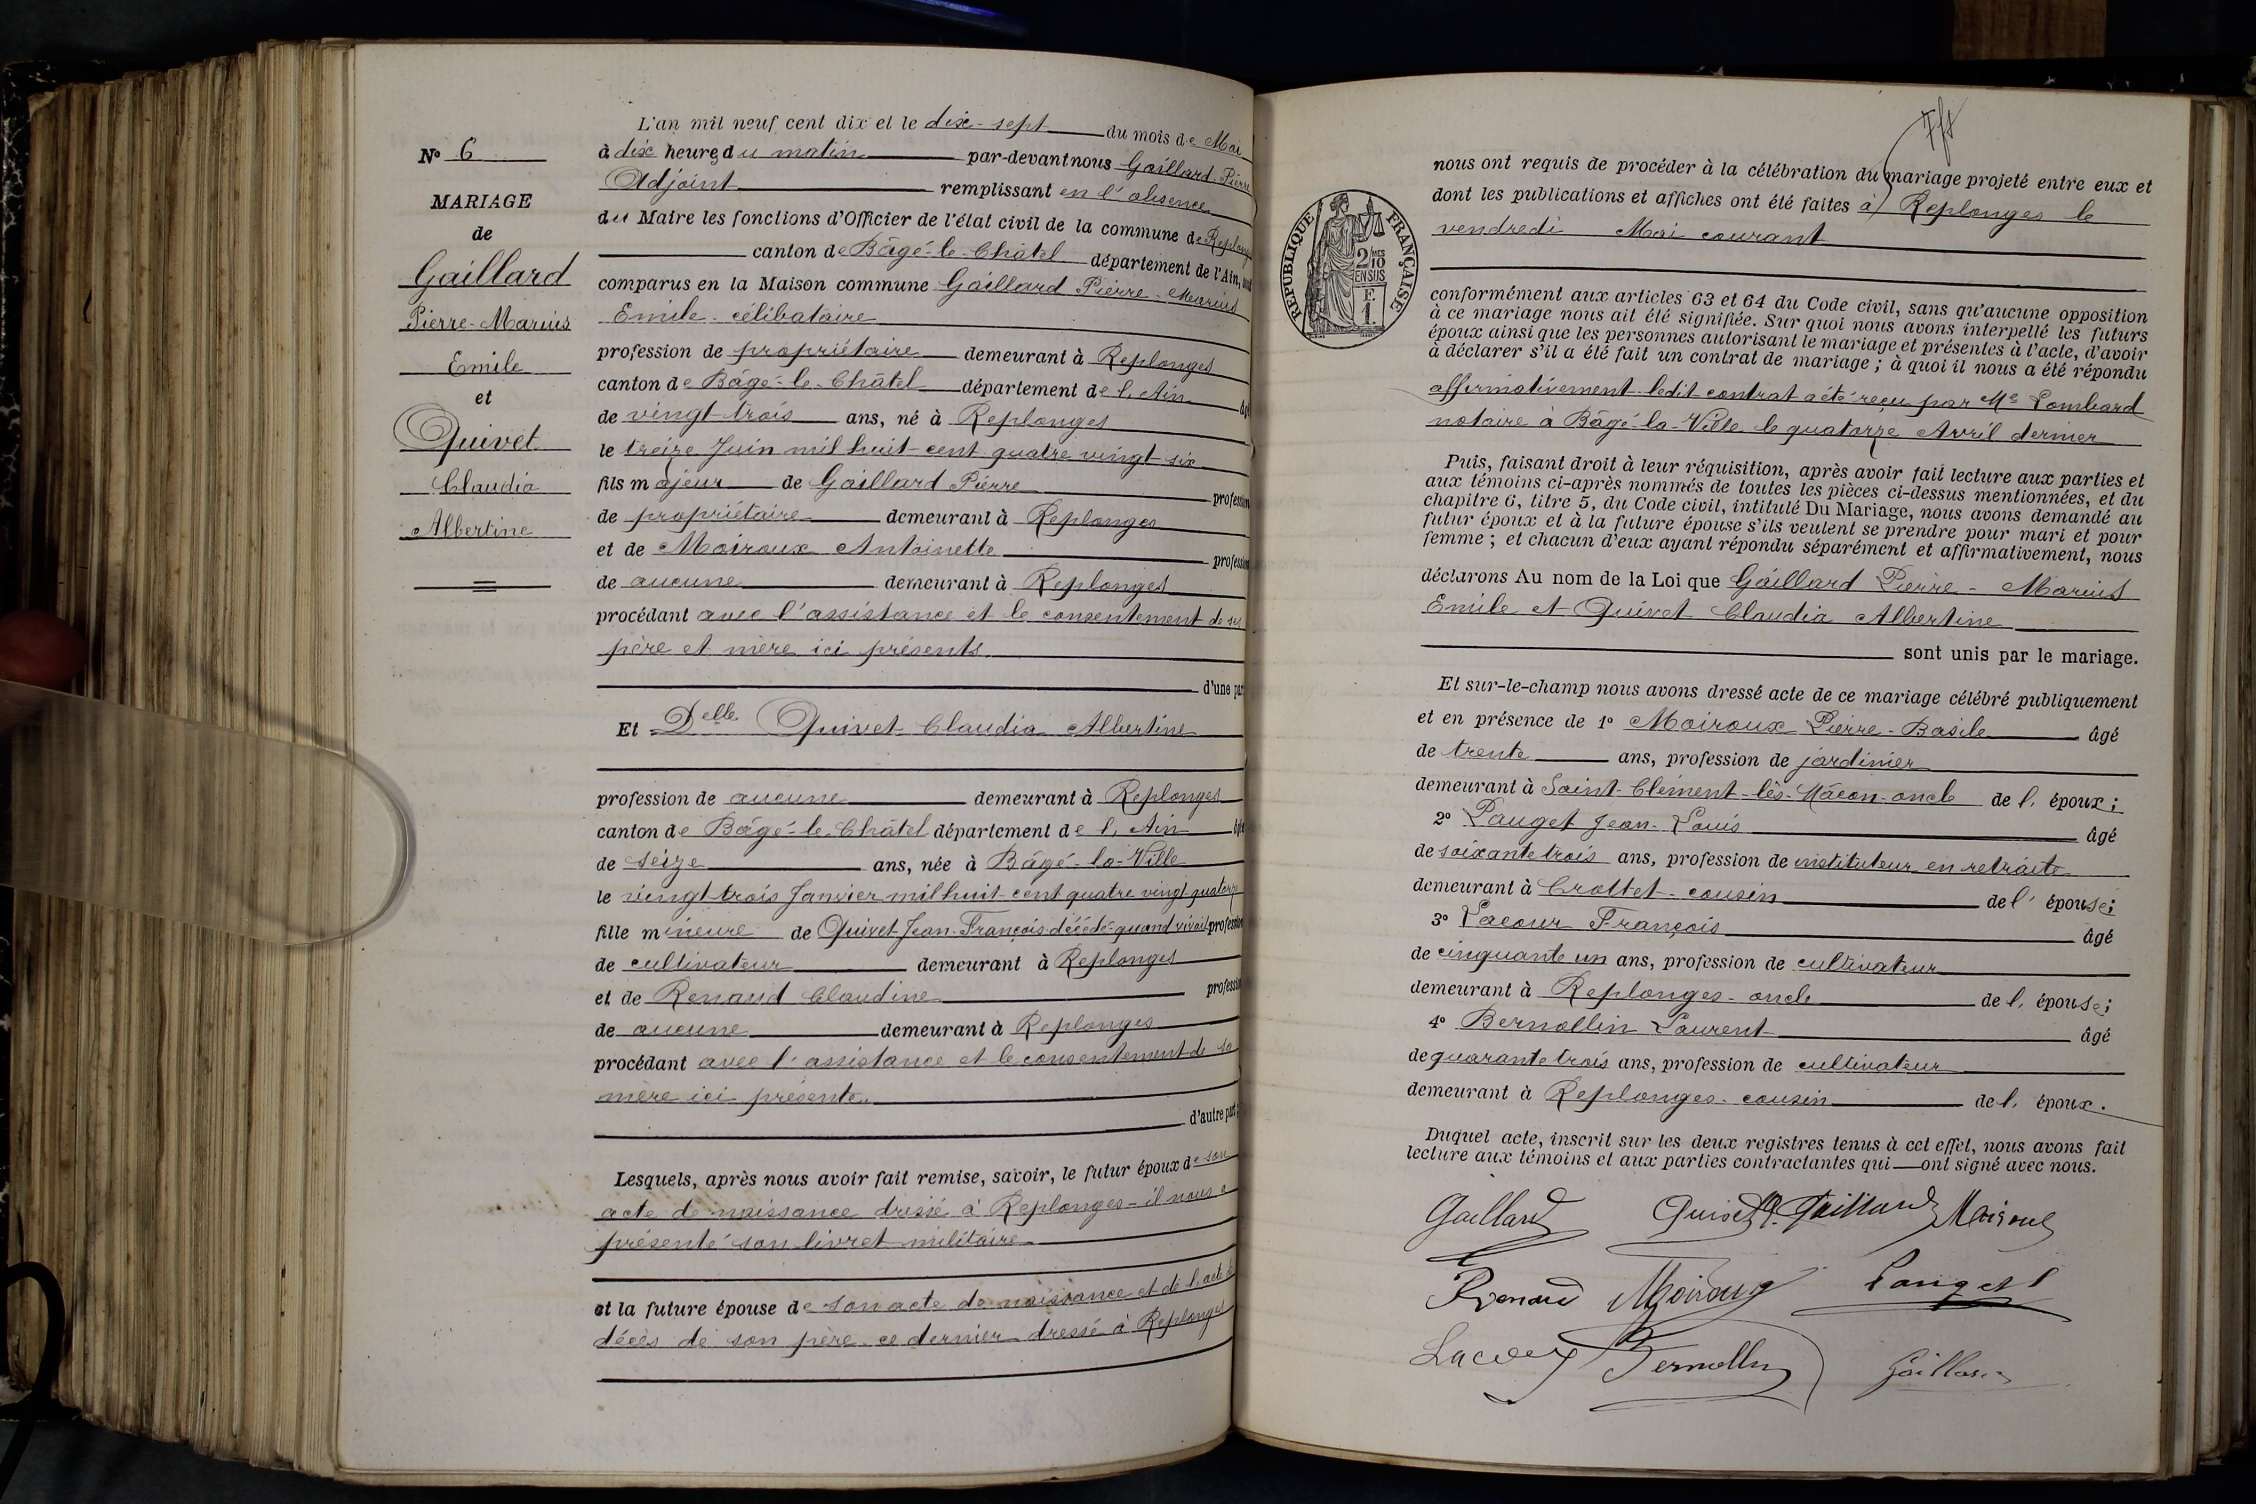 N° 6
MARIAGE
de
Gaillard
Pierre-Marius
Emile
et
Quivet
Claudia
Albertine
L'an mil neuf cent dix et le dix-sept du mois de Mai
à dix heures du matin par-devant nous Gaillard Pierre
Adjoint remplissant en l'absence
du Maire les fonctions d'Officier de l'état civil de la commune de Replonges
canton de Bâgé-le-Châtel département de l'Ain, sont
comparus en la Maison commune Gaillard Pierre-Marius
Emile - célibataire
profession de propriétaire demeurant à Replonges
canton de Bâgé-le-Châtel département de l'Ain âgé
de vingt-trois ans, né à Replonges
le treize Juin mil huit-cent quatre vingt-six
fils majeur de Gaillard Pierre profession
de propriétaire demeurant à Replonges
et de Moiroux Antoinette profession
de aucune demeurant à Replonges
procédant avec l'assistance et le consentement de ses
père et mère ici présents
d'une part
Et Delle Quivet Claudia Albertine
profession de aucune demeurant à Replonges
canton de Bâgé-le-Châtel département de l'Ain âgée
de seize ans, née à Bâgé-la-Ville
le vingt-trois Janvier mil huit-cent quatre vingt quatorze
fille mineure de Quivet Jean-François décédé quand vivait profession
de cultivateur demeurant à Replonges
et de Renaud Claudine profession
de aucune demeurant à Replonges
procédant avec l'assistance et le consentement de sa
mère ici présente
d'autre part ;
Lesquels, après nous avoir fait remise, savoir, le futur époux de son
acte de naissance dressé à Replonges - il nous a
présenté son livret militaire
et la future épouse de son acte de naissance et de l'acte de
décès de son père - ce dernier dressé à Replonges
nous ont requis de procéder à la célébration du mariage projeté entre eux et
dont les publications et affiches ont été faites à Replonges le
vendredi Mai courant
RÉPUBLIQUE FRANÇAISE
2/10
EN SUS
conformément aux articles 63 et 64 du Code civil, sans qu'aucune opposition
à ce mariage nous ait été signifiée. Sur quoi nous avons interpellé les futurs
époux ainsi que les personnes autorisant le mariage et présentes à l'acte, d'avoir
à déclarer s'il a été fait un contrat de mariage ; à quoi il nous a été répondu
affirmativement - ledit contrat a été reçu par Me Lombard
notaire à Bâgé-la-Ville le quatorze Avril dernier
Puis, faisant droit à leur réquisition, après avoir fait lecture aux parties et
aux témoins ci-après nommés de toutes les pièces ci-dessus mentionnées, et du
chapitre 6, titre 5, du Code civil, intitulé Du Mariage, nous avons demandé au
futur époux et à la future épouse s'ils veulent se prendre pour mari et pour
femme ; et chacun d'eux ayant répondu séparément et affirmativement, nous
déclarons Au nom de la Loi que Gaillard Pierre-Marius
Emile et Quivet Claudia Albertine
sont unis par le mariage.
Et sur-le-champ nous avons dressé acte de ce mariage célébré publiquement
et en présence de 1° Moiroux Pierre-Basile âgé
de trente ans, profession de jardinier
demeurant à Saint-Clément-lès-Mâcon - oncle de l'époux ;
2° Pauget Jean-Louis âgé
de soixante trois ans, profession de instituteur en retraite
demeurant à Crottet - cousin de l'épouse ;
3° Lacour François âgé
de cinquante un ans, profession de cultivateur
demeurant à Replonges - oncle de l'épouse ;
4° Bernollin Laurent âgé
de quarante trois ans, profession de cultivateur
demeurant à Replonges - cousin de l'époux.
Duquel acte, inscrit sur les deux registres tenus à cet effet, nous avons fait
lecture aux témoins et aux parties contractantes qui ont signé avec nous.
Gaillard Quivet Gaillard Moiroux
Renaud Moiroux Pauget
Lacour Bernollin Gaillard